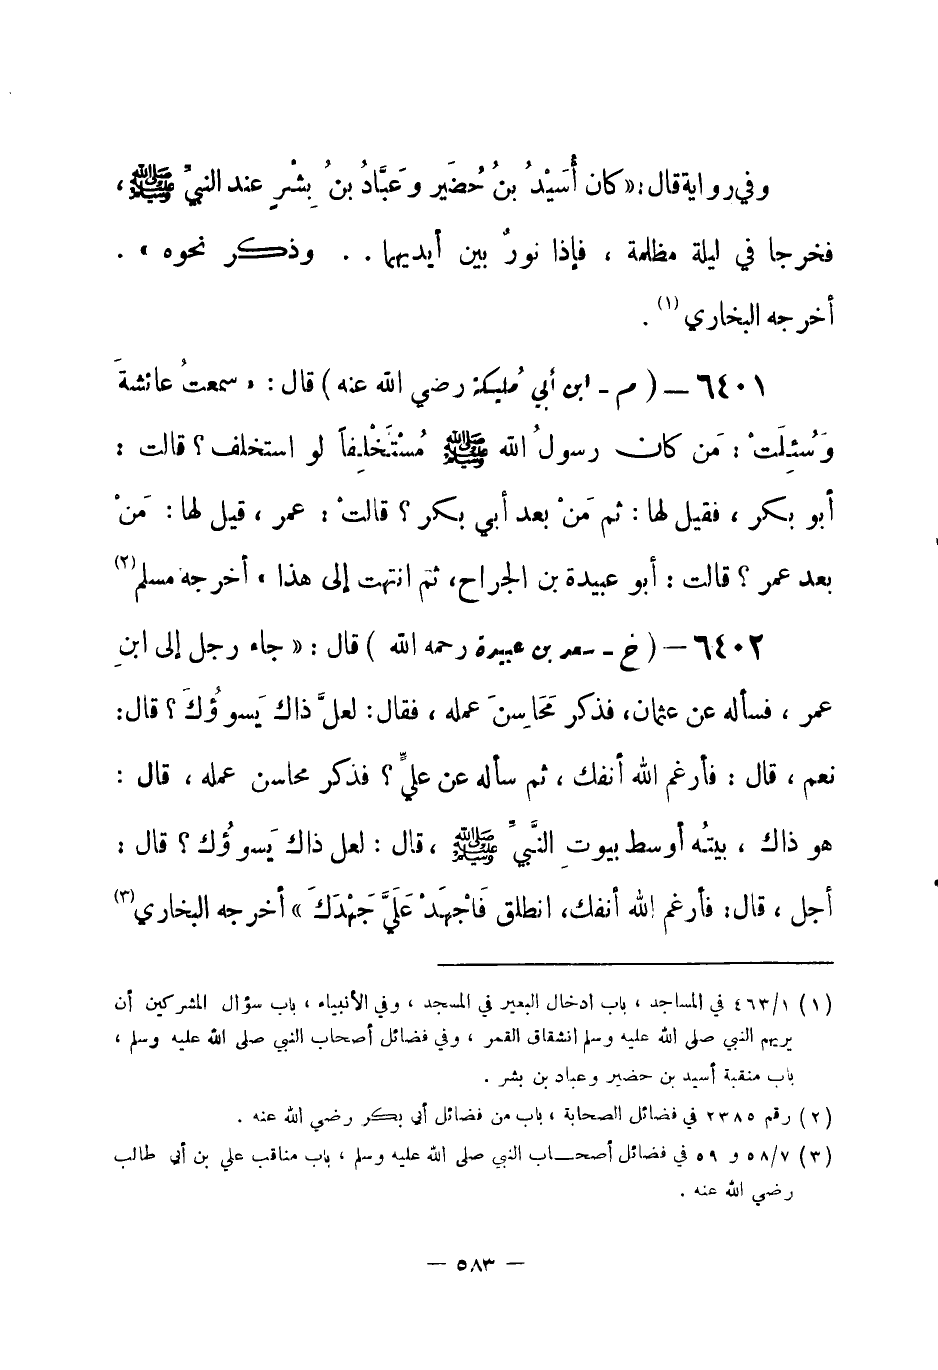 وفي رواية قال : « كان أُسَيْدُ بنُ حُضَير وعَبَّادُ بنُ بِشْرٍ عند النبيِّ ﷺ ،
فخرجا في ليلة مظلمة ، فإذا نورٌ بين أيديهما . . وذكر نحوه » .
أخرجه البخاري (١) .
٦٤٠١ – ( م - ابن أبي مُليكة رضي الله عنه ) قال : « سمعتُ عائشةَ
وَسُئِلَتْ : مَن كان رسولُ الله ﷺ مُسْتَخْلِفاً لو استخلف ؟ قالت :
أبو بكر ، فقيل لها : ثم مَنْ بعد أبي بكر ؟ قالتْ : عمر ، قيل لها : مَنْ
بعد عمر ؟ قالت : أبو عبيدة بن الجراح، ثم انتهت إلى هذا » أخرجه مسلم (٢)
٦٤٠٢ – ( خ - سعد بن عبيدة رحمه الله ) قال : « جاء رجل إلى ابنِ
عمر ، فسأله عن عثمان، فذكر مَحَاسِنَ عمله ، فقال : لعلَّ ذاك يَسوؤُكَ ؟ قال :
نعم ، قال : فأرغم الله أنفك ، ثم سأله عن عليٍّ ؟ فذكر محاسن عمله ، قال :
هو ذاك ، بيتُه أوسط بيوتِ النَّبيِّ ﷺ ، قال : لعل ذاك يَسوؤُك ؟ قال :
أجل ، قال : فأرغم الله أنفك، انطلق فَاجْهَدْ عَلَيَّ جَهْدَكَ » أخرجه البخاري (٣)
(١) ٤٦٣/١ في المساجد ، باب ادخال البعير في المسجد ، وفي الأنبياء ، باب سؤال المشركين أن
يريهم النبي صلى الله عليه وسلم انشقاق القمر ، وفي فضائل أصحاب النبي صلى الله عليه وسلم ،
باب منقبة أسيد بن حضير وعباد بن بشر .
(٢) رقم ٢٣٨٥ في فضائل الصحابة ، باب من فضائل أبي بكر رضي الله عنه .
(٣) ٥٨/٧ و ٥٩ في فضائل أصحاب النبي صلى الله عليه وسلم ، باب مناقب علي بن أبي طالب
رضي الله عنه .
– ٥٨٣ –